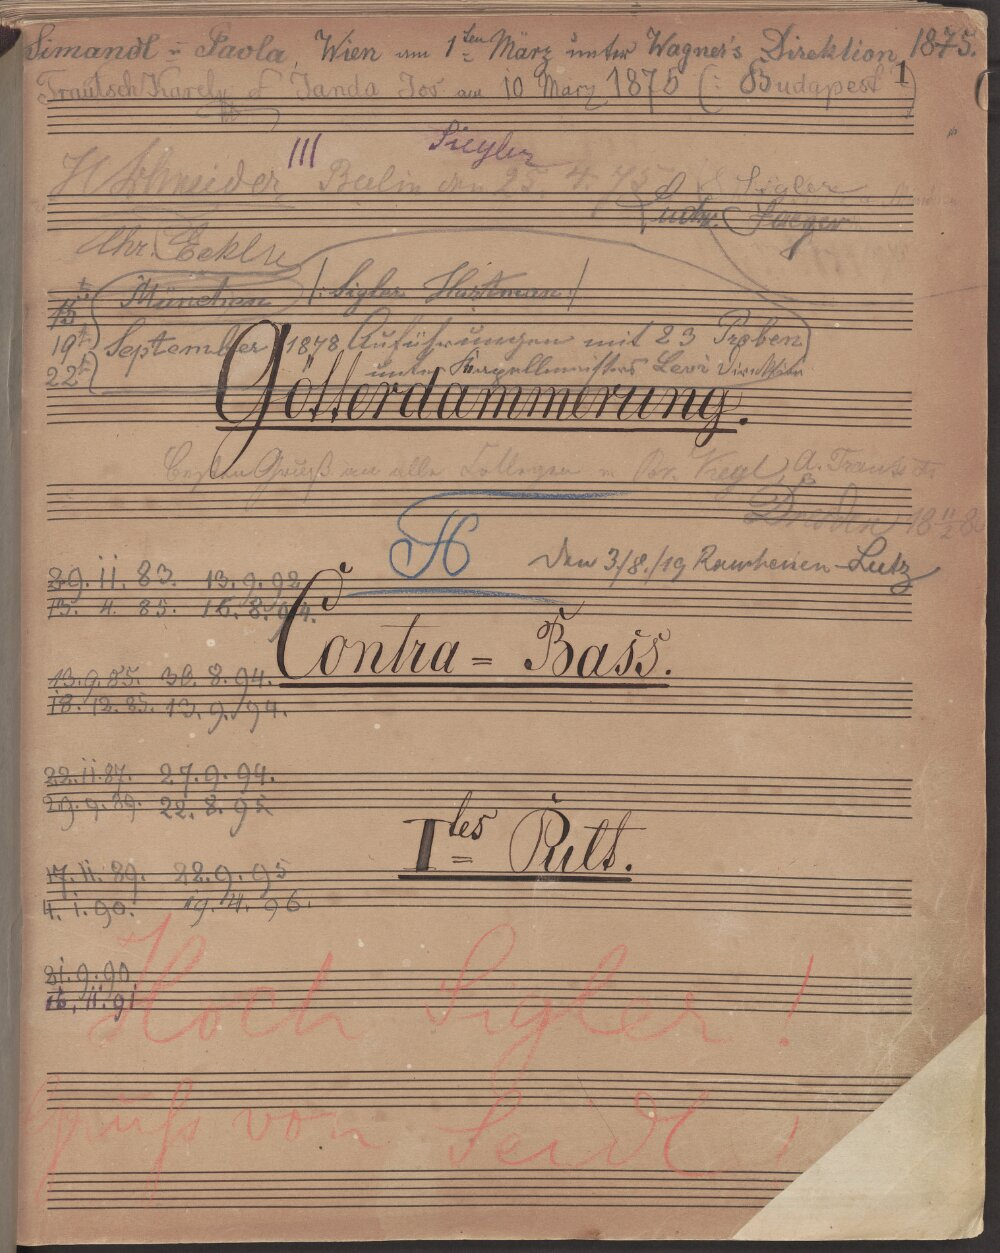 Simandl u Paola, Wien am 1ten März unter Wagner's Direktion 1875.
1
Trautsch Karely Janda Jos am 10 März 1875 (: Budapest )
III Siegler
H Schneider Berlin den 25. 4. 75 Sigler
Ludw. Jaeger
Chr. Eckl
München /: Sigler Hartman :/
15t
19t September 1878 Aufführungen mit 23 Proben
22t unter Kapellmeisters Levi Direktion
Götterdämmerung.
Besten Gruß an alle Collegen Kegl, A.
Dresden
H
Den 3/8./19 Lutz
29. 11. 83. 13. 9. 92
13. 4. 85. 16. 8. 94.
Contra = Bass.
13. 9. 85. 30. 8. 94.
18. 12. 85. 13. 9. 94.
22. 11. 87. 27. 9. 94.
29. 9. 89. 22. 8. 95
Ites Pult.
17. 11. 89. 22. 9. 95
4. 1. 90. 19. 4. 96.
21. 9. 90
16. 11. 91
Hoch Sigler!
Gruß von Seidl!